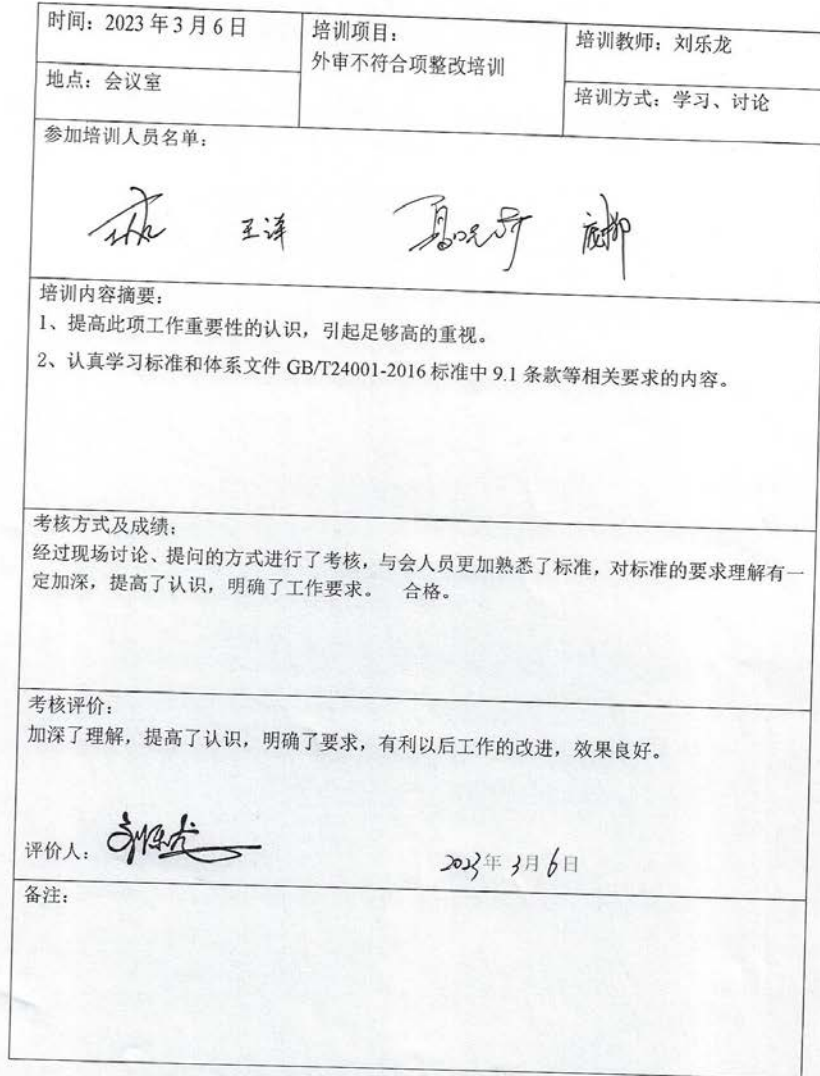 时间：2023 年 3 月 6 日
培训项目：
外审不符合项整改培训
培训教师：刘乐龙
地点：会议室
培训方式：学习、讨论
参加培训人员名单：
王洋
培训内容摘要：
1、提高此项工作重要性的认识，引起足够高的重视。
2、认真学习标准和体系文件 GB/T24001-2016 标准中 9.1 条款等相关要求的内容。
考核方式及成绩：
经过现场讨论、提问的方式进行了考核，与会人员更加熟悉了标准，对标准的要求理解有一
定加深，提高了认识，明确了工作要求。 合格。
考核评价：
加深了理解，提高了认识，明确了要求，有利以后工作的改进，效果良好。
评价人：刘乐龙
2023年 3月 6日
备注：